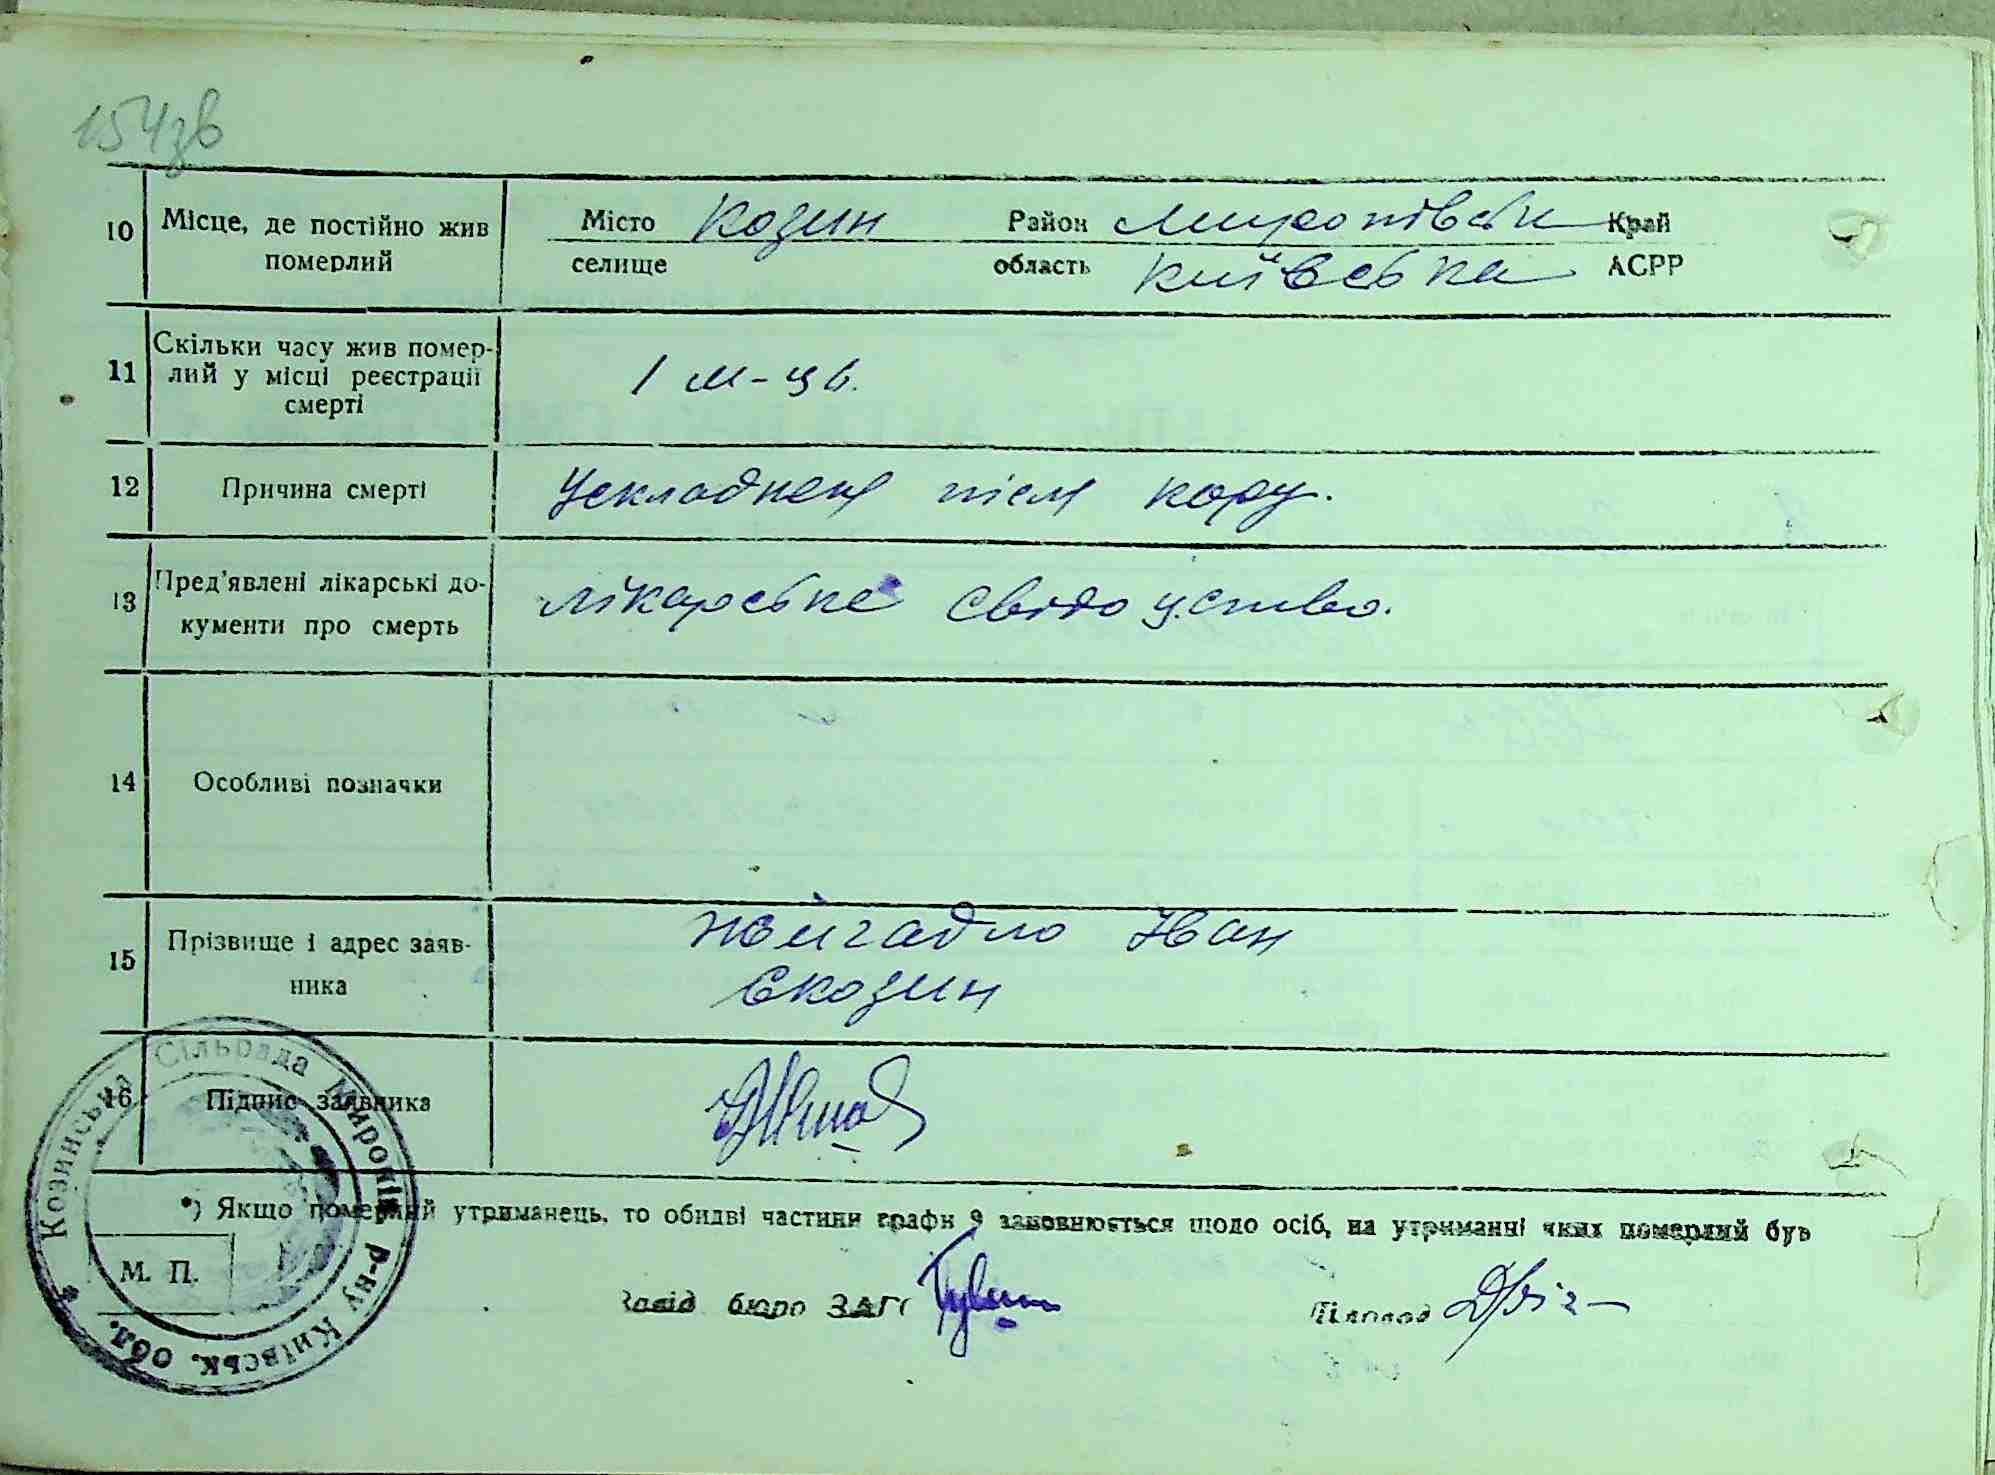 154зв
10 Місце, де постійно жив померлий
Місто Козин Район Миропівськ Край
селище область Київська АСРР
11 Скільки часу жив помер-
лий у місці реєстрації
смерті
1 м-ць.
12 Причина смерті Ускладнен після кору.
13 Пред'явлені лікарські до-
кументи про смерть
лікарське свідоцство.
14 Особливі позначки
15 Прізвище і адрес заяв-
ника
Іван
с Козин
16 Підпис заявника
*) Якщо померлий утриманець, то обидві частини графи 9 заповнюється щодо осіб, на утриманні яких померлий був
М. П.
Завід бюро ЗАГС Діловод
Козинська Сільрада Миропів р-ну Київськ. обл.